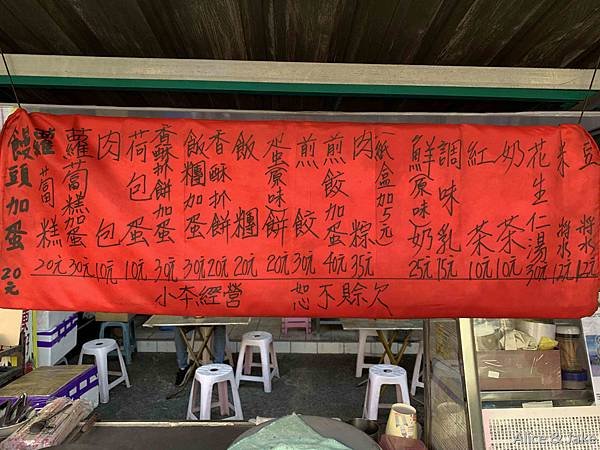 饅頭加蛋 20元
蘿蔔糕 20元
蘿蔔糕加蛋 30元
肉包 10元
荷包蛋 10元
香酥抓餅加蛋 30元
飯糰加蛋 30元
香酥抓餅 20元
飯糰 20元
蛋(原味)餅 20元
煎餃 30元
煎餃加蛋 40元
肉粽 35元
(紙盒加5元)
鮮(原味)奶 25元
調味乳 15元
紅茶 10元
奶茶 10元
花生仁湯 30元
米漿 12元
豆漿 12元
小本經營 恕不賒欠
Alice & Jake